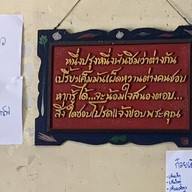 หนึ่งปรุงหนึ่งพันชิมว่าต่างกัน
เปรี้ยวเค็มมันเผ็ดหวานต่างคนชอบ
หากรู้ได้...จะน้อมใจสนองตอบ...
สิ่งใดชอบโปรดแจ้งขอบพระคุณ